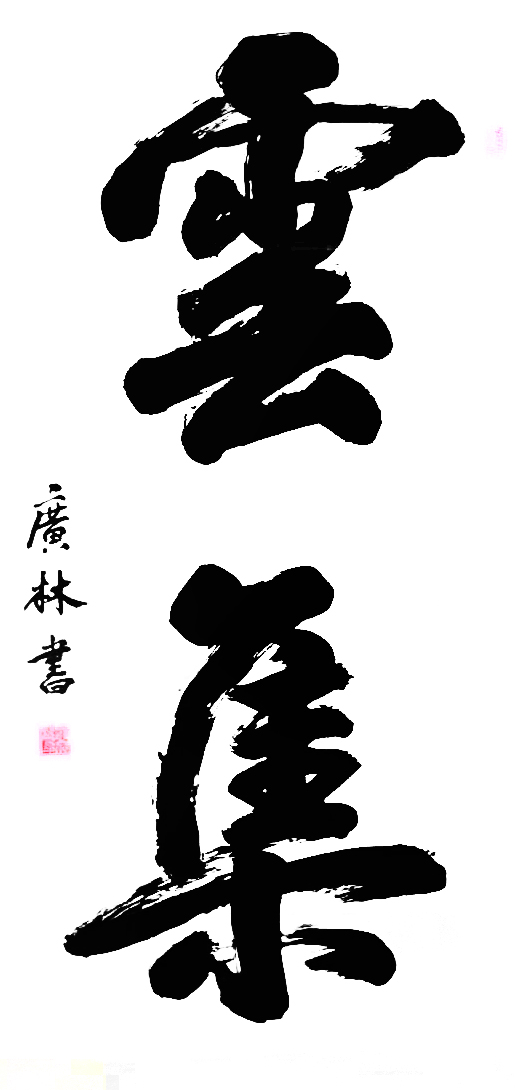 雲集
廣林書